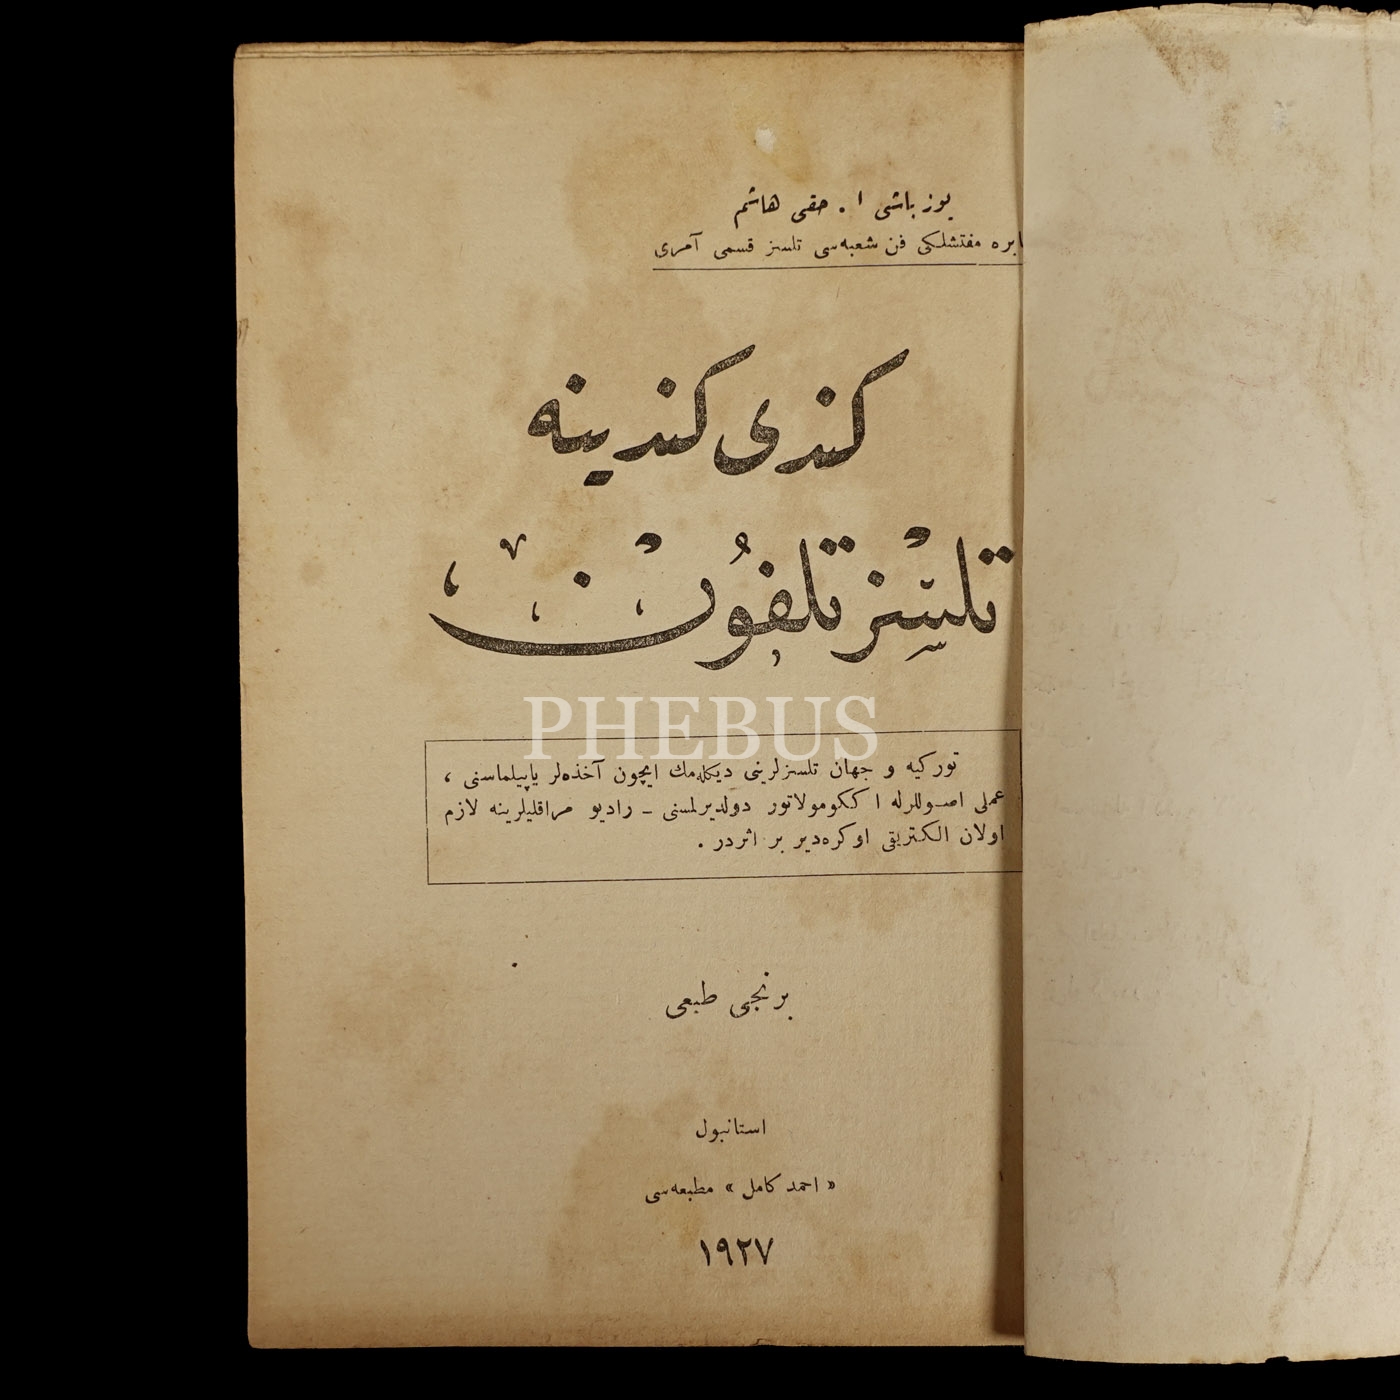 يوزباشی ا . حقی هاشم
مفتشلكی فن شعبه‌سی تلسز قسمی آمری
كندی كندينه
تلسز تلفون
PHEBUS
توركيه و جهان تلسزلرينی ديكله‌مك ايچون آخذه‌لر ياپيلماسنی ،
عملی اصوللرله آككومولاتور دولديرلمسنی ـ راديو مراقليلرينه لازم
اولان الكتريقی اوكره‌دير بر اثردر .
برنجی طبعی
استانبول
« احمد كامل » مطبعه‌سی
١٩٢٧